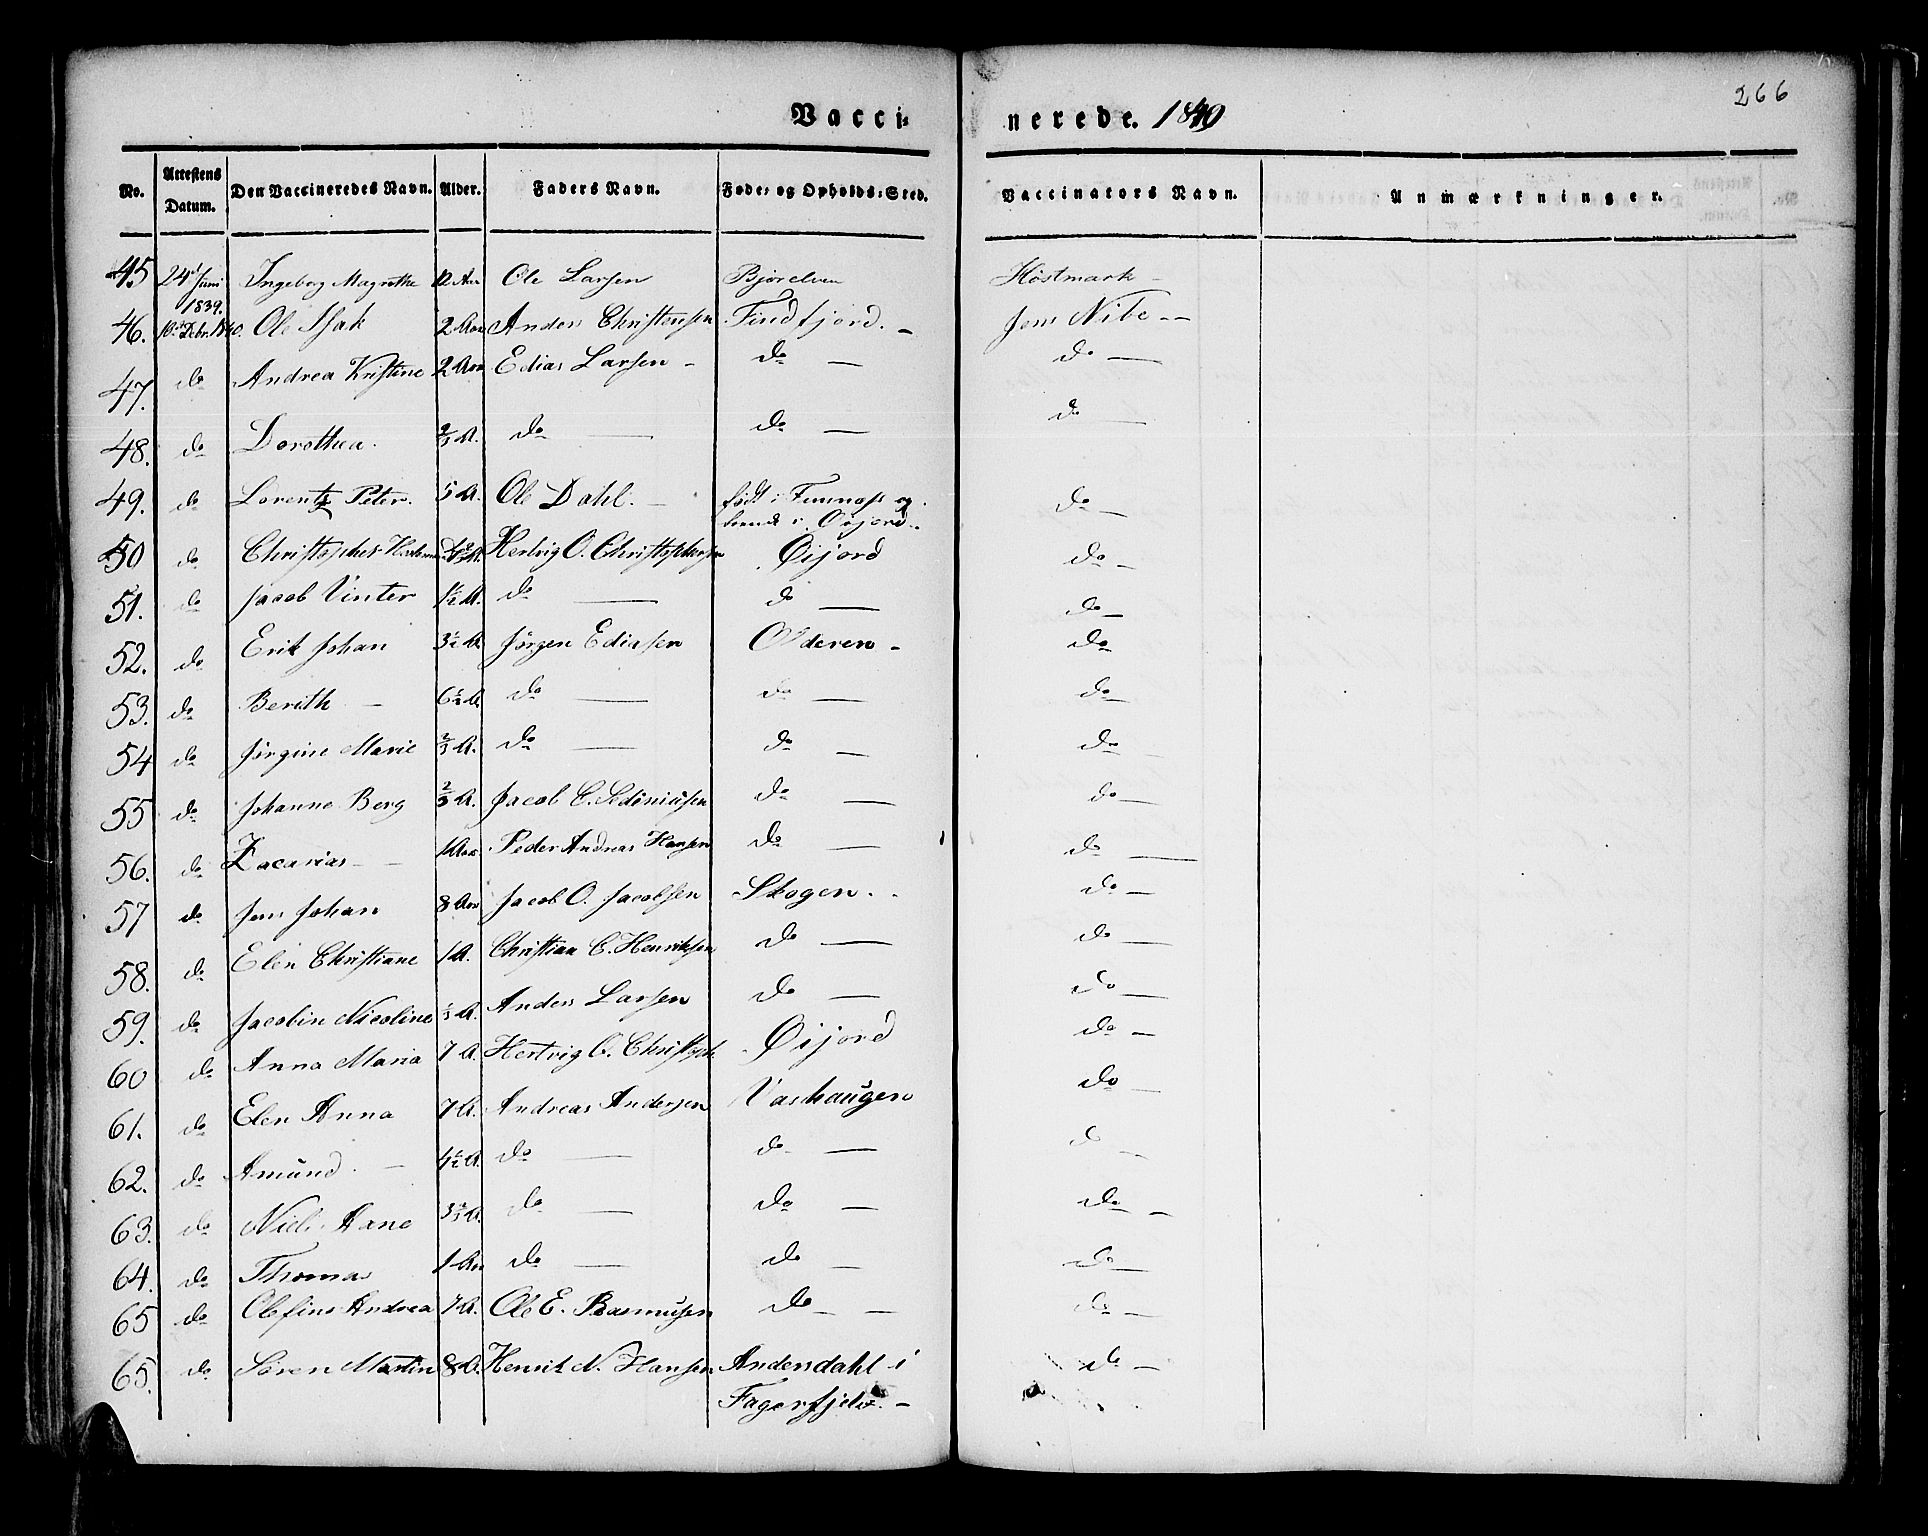 266
Vacci-
nerede. 1840
No. Attestens Datum. Den Vaccineredes Navn. Alder. Faders Navn. Føde- og Opholds-Sted. Vaccinators Navn. Anmærkninger.
45 24de Juni 1839. Ingeborg Magrethe 12 Aar Ole Larsen Bjørelven Höstmark -
46. 10de Debr. 1840. Ole Isak 2 Aar Anders Christensen Findfjord. - Jens Nibe --
47. do Andrea Kristine 2 Aar Edias Larsen - do - do -
48. do Dorothea. 2/3 A. do - do - do -
49. do Lorentz Peter. 5 A. Ole Dahl. - født i og
boende i Øijord. do -
50 do Christopher A. Hertvig O. Christophersen Øijord do -
51. do Jacob Vinter 1½ A. do - do - do -
52. do Erik Johan 3½ A. Jørgen Ediassen Olderen - do
53. do Berith - 6½ A. do - do - do -
54 do Jørgine Marie 2/3 A. do - do - do -
55 do Johanne Berg 2/3 A. Jacob C. do - do -
56. do Zacarias - 1 Aar Peder Andreas Hansen do - do -
57 do Jens Johan 8 Aar Jacob O. Jacobsen Skogen. do -
58. do Elen Christiane 1 A. Christian C. Henriksen do - do -
59. do Jacobin Nicoline A. Anders Larsen do - do -
60 do Anna Maria 7 A. Hertvig O. Christoph Øijord do -
61. do Elen Anna 7 A. Andreas Andersen Vashaugen do -
62. do Amund. - 4½ A. do - do - do -
63. do Niels Aano A. do - do - do -
64. do Thomas 1 Aar do - do - do -
65 do Olefine Andrea 7 A. Ole E. Rasmusen do - do -
65. do Søren Martin 8 A. Henrik N. Hansen Andersdahl i do -
Fagerfjeld. -